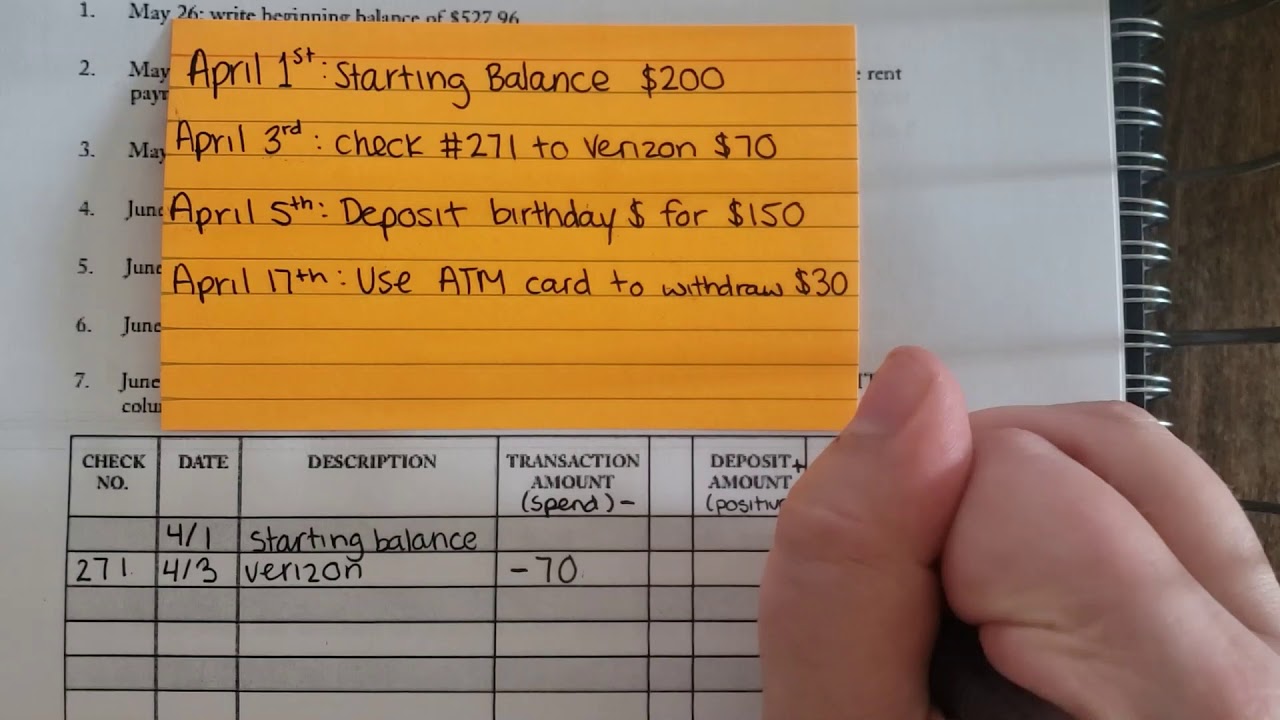 1. May 26: write beginning balance of $527.96
April 1st: Starting Balance $200
2. May rent
payr
April 3rd: check #271 to verizon $70
3. May
April 5th: Deposit birthday $ for $150
4. June
April 17th: Use ATM card to withdraw $30
5. June
6. June
7. June
colu
CHECK NO. DATE DESCRIPTION TRANSACTION AMOUNT (spend) - DEPOSIT + AMOUNT (positive
4/1 starting balance
271 4/3 verizon -70